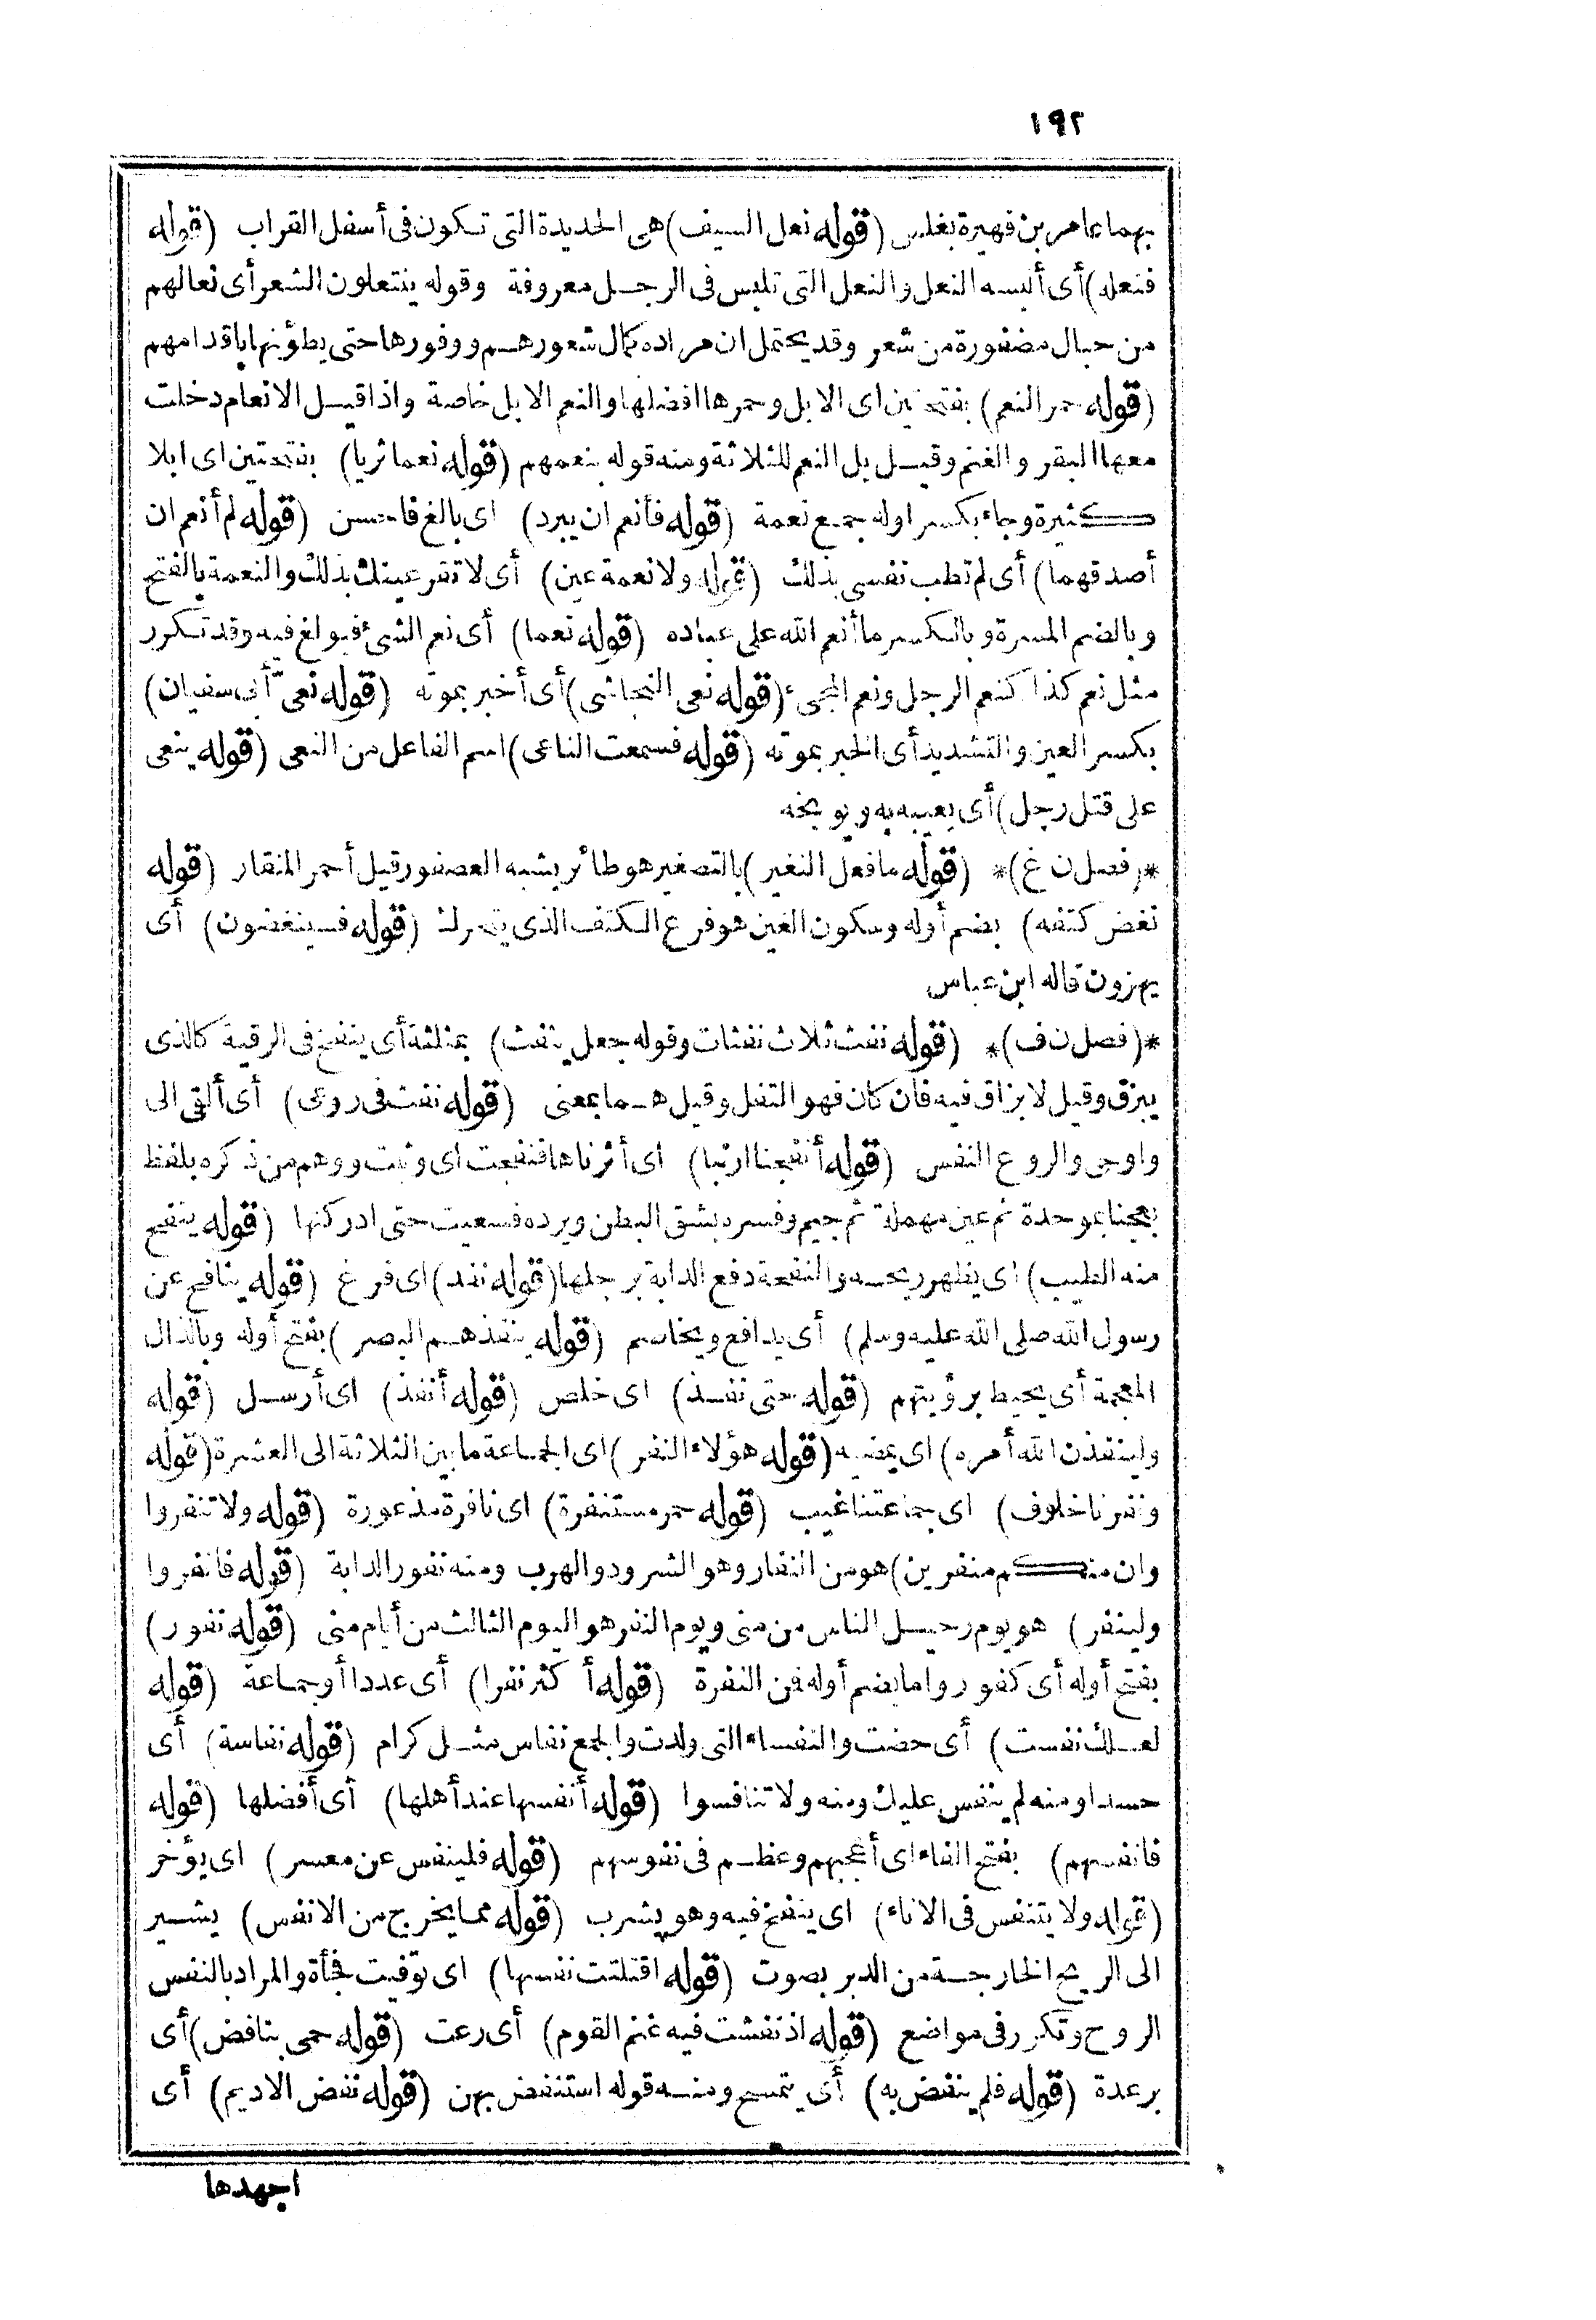 ١٩٢
بهما عامر بن فهيرة بغلس (قوله نعل السيف) هى الحديدة التى تكون فى أسفل القراب (قوله
فنعله) أى ألبسه النعل والنعل التى تلبس فى الرجل معروفة وقوله ينتعلون الشعر أى نعالهم
من حبال مضفورة من شعر وقد يحتمل ان مراده كمال شعورهم ووفورها حتى يطؤنها باقدامهم
(قوله حمر النعم) بفتحتين اى الابل وحمرها افضلها والنعم الابل خاصة واذا قيل الانعام دخلت
معها البقر والغنم وقيل بل النعم للثلاثة ومنه قوله بنعمهم (قوله نعما ثريا) بفتحتين اى ابلا
كثيرة وجاء بكسر اوله جمع نعمة (قوله فأنعم ان يبرد) اى بالغ فاحسن (قوله لم أنعم ان
أصدقهما) أى لم تطب نفسى بذلك (قوله ولا نعمة عين) أى لا تقر عينك بذلك والنعمة بالفتح
وبالضم المسرة وبالكسر ما أنعم الله على عباده (قوله نعما) أى نعم الشئ فبولغ فيه وقد تكرر
مثل نعم كذا كنعم الرجل ونعم المجئ (قوله نعى النجاشى) أى أخبر بموته (قوله نعىّ أبى سفيان)
بكسر العين والتشديد أى الخبر بموته (قوله فسمعت الناعى) اسم الفاعل من النعى (قوله ينعى
على قتل رجل) أى يعيبه به ويوبخه
*(فصل ن غ)* (قوله ما فعل النغير) بالتصغير هو طائر يشبه العصفور قيل أحمر المنقار (قوله
نغض كتفه) بضم أوله وسكون الغين هو فرع الكتف الذى يتحرك (قوله فسينغضون) أى
يهزون قاله ابن عباس
*(فصل ن ف)* (قوله نفث ثلاث نفثات وقوله جعل ينفث) بمثلثة أى ينفخ فى الرقية كالذى
يبزق وقيل لا بزاق فيه فان كان فهو التفل وقيل هما بمعنى (قوله نفث فى روعى) أى ألقى الى
واوحى والروع النفس (قوله أنفجنا ارنبا) اى أثرناها فنفجت اى وثبت ووهم من ذكره بلفظ
بعجنا بموحدة ثم عين مهملة ثم جيم وفسره بشق البطن ويرده فسعيت حتى ادركتها (قوله ينفح
منه الطيب) اى يظهر ريحه والنفحة دفع الدابة برجلها (قوله نفد) اى فرغ (قوله ينافح عن
رسول الله صلى الله عليه وسلم) أى يدافع ويخاصم (قوله ينفذهم البصر) بفتح أوله وبالذال
المعجمة أى يحيط برؤيتهم (قوله حتى نفذ) اى خلص (قوله أنفذ) اى أرسل (قوله
ولينفذن الله أمره) اى يمضيه (قوله هؤلاء النفر) اى الجماعة ما بين الثلاثة الى العشرة (قوله
ونفرنا خلوف) اى جماعتنا غيب (قوله حمر مستنفرة) اى نافرة مذعورة (قوله ولا تنفروا
وان منكم منفرين) هو من النفار وهو الشرود والهرب ومنه نفور الدابة (قوله فانفروا
ولينفر) هو يوم رحيل الناس من منى ويوم النفر هو اليوم الثالث من أيام منى (قوله نفور)
بفتح أوله أى كفور واما بضم أوله فمن النفرة (قوله أكثر نفرا) أى عددا أو جماعة (قوله
لعلك نفست) أى حضت والنفساء التى ولدت والجمع نفاس مثل كرام (قوله نفاسة) أى
حسدا ومنه لم ينفس عليك ومنه ولا تنافسوا (قوله أنفسها عند أهلها) أى أفضلها (قوله
فانفسهم) بفتح الفاء اى أعجبهم وعظم فى نفوسهم (قوله فلينفس عن معسر) اى يؤخر
(قوله ولا يتنفس فى الاناء) اى ينفخ فيه وهو يشرب (قوله مما يخرج من الانفس) يشير
الى الريح الخارجة من الدبر بصوت (قوله افتلتت نفسها) اى توفيت فجأة والمراد بالنفس
الروح وتكرر فى مواضع (قوله اذ نفشت فيه غنم القوم) أى رعت (قوله حمى بنافض) أى
برعدة (قوله فلم ينفض به) أى يتمسح ومنه قوله استنفض بهن (قوله نفض الاديم) أى
اجهدها